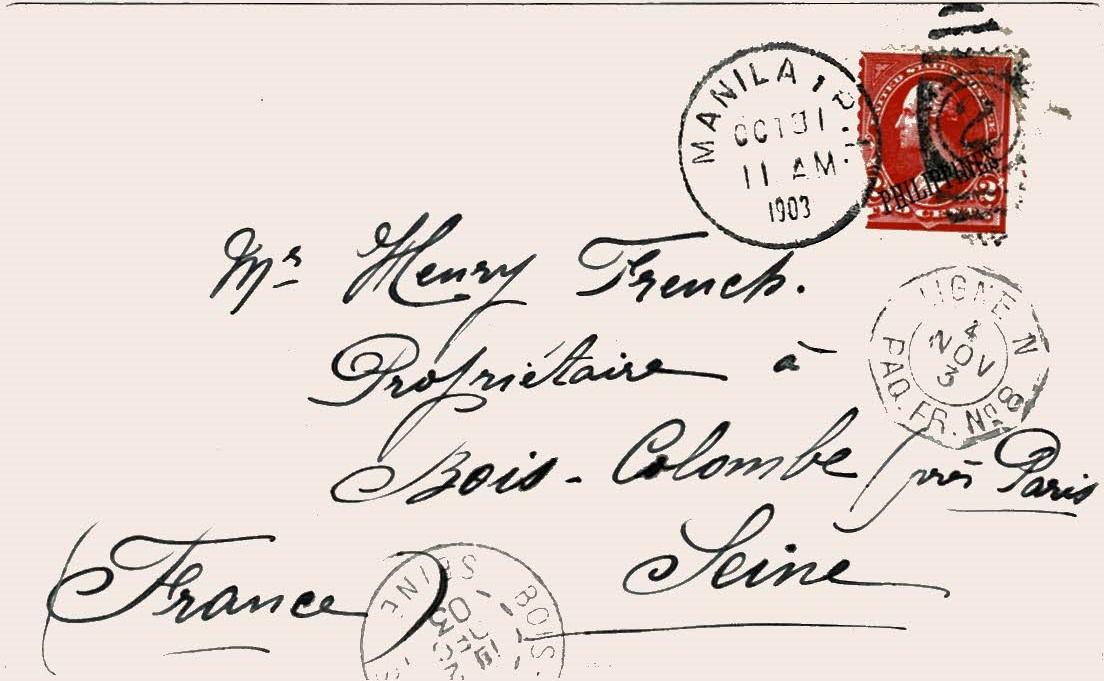 MANILA 1 P. I.
OCT 31
11 AM
1903
UNITED STATES POSTAGE
PHILIPPINES
2 CENTS 2
Mr Henry French.
Propriétaire à
Bois-Colombe (près Paris
Seine
(France)
LIGNE N
4
NOV
3
PAQ. FR. No 8
BOIS-
SEINE
03